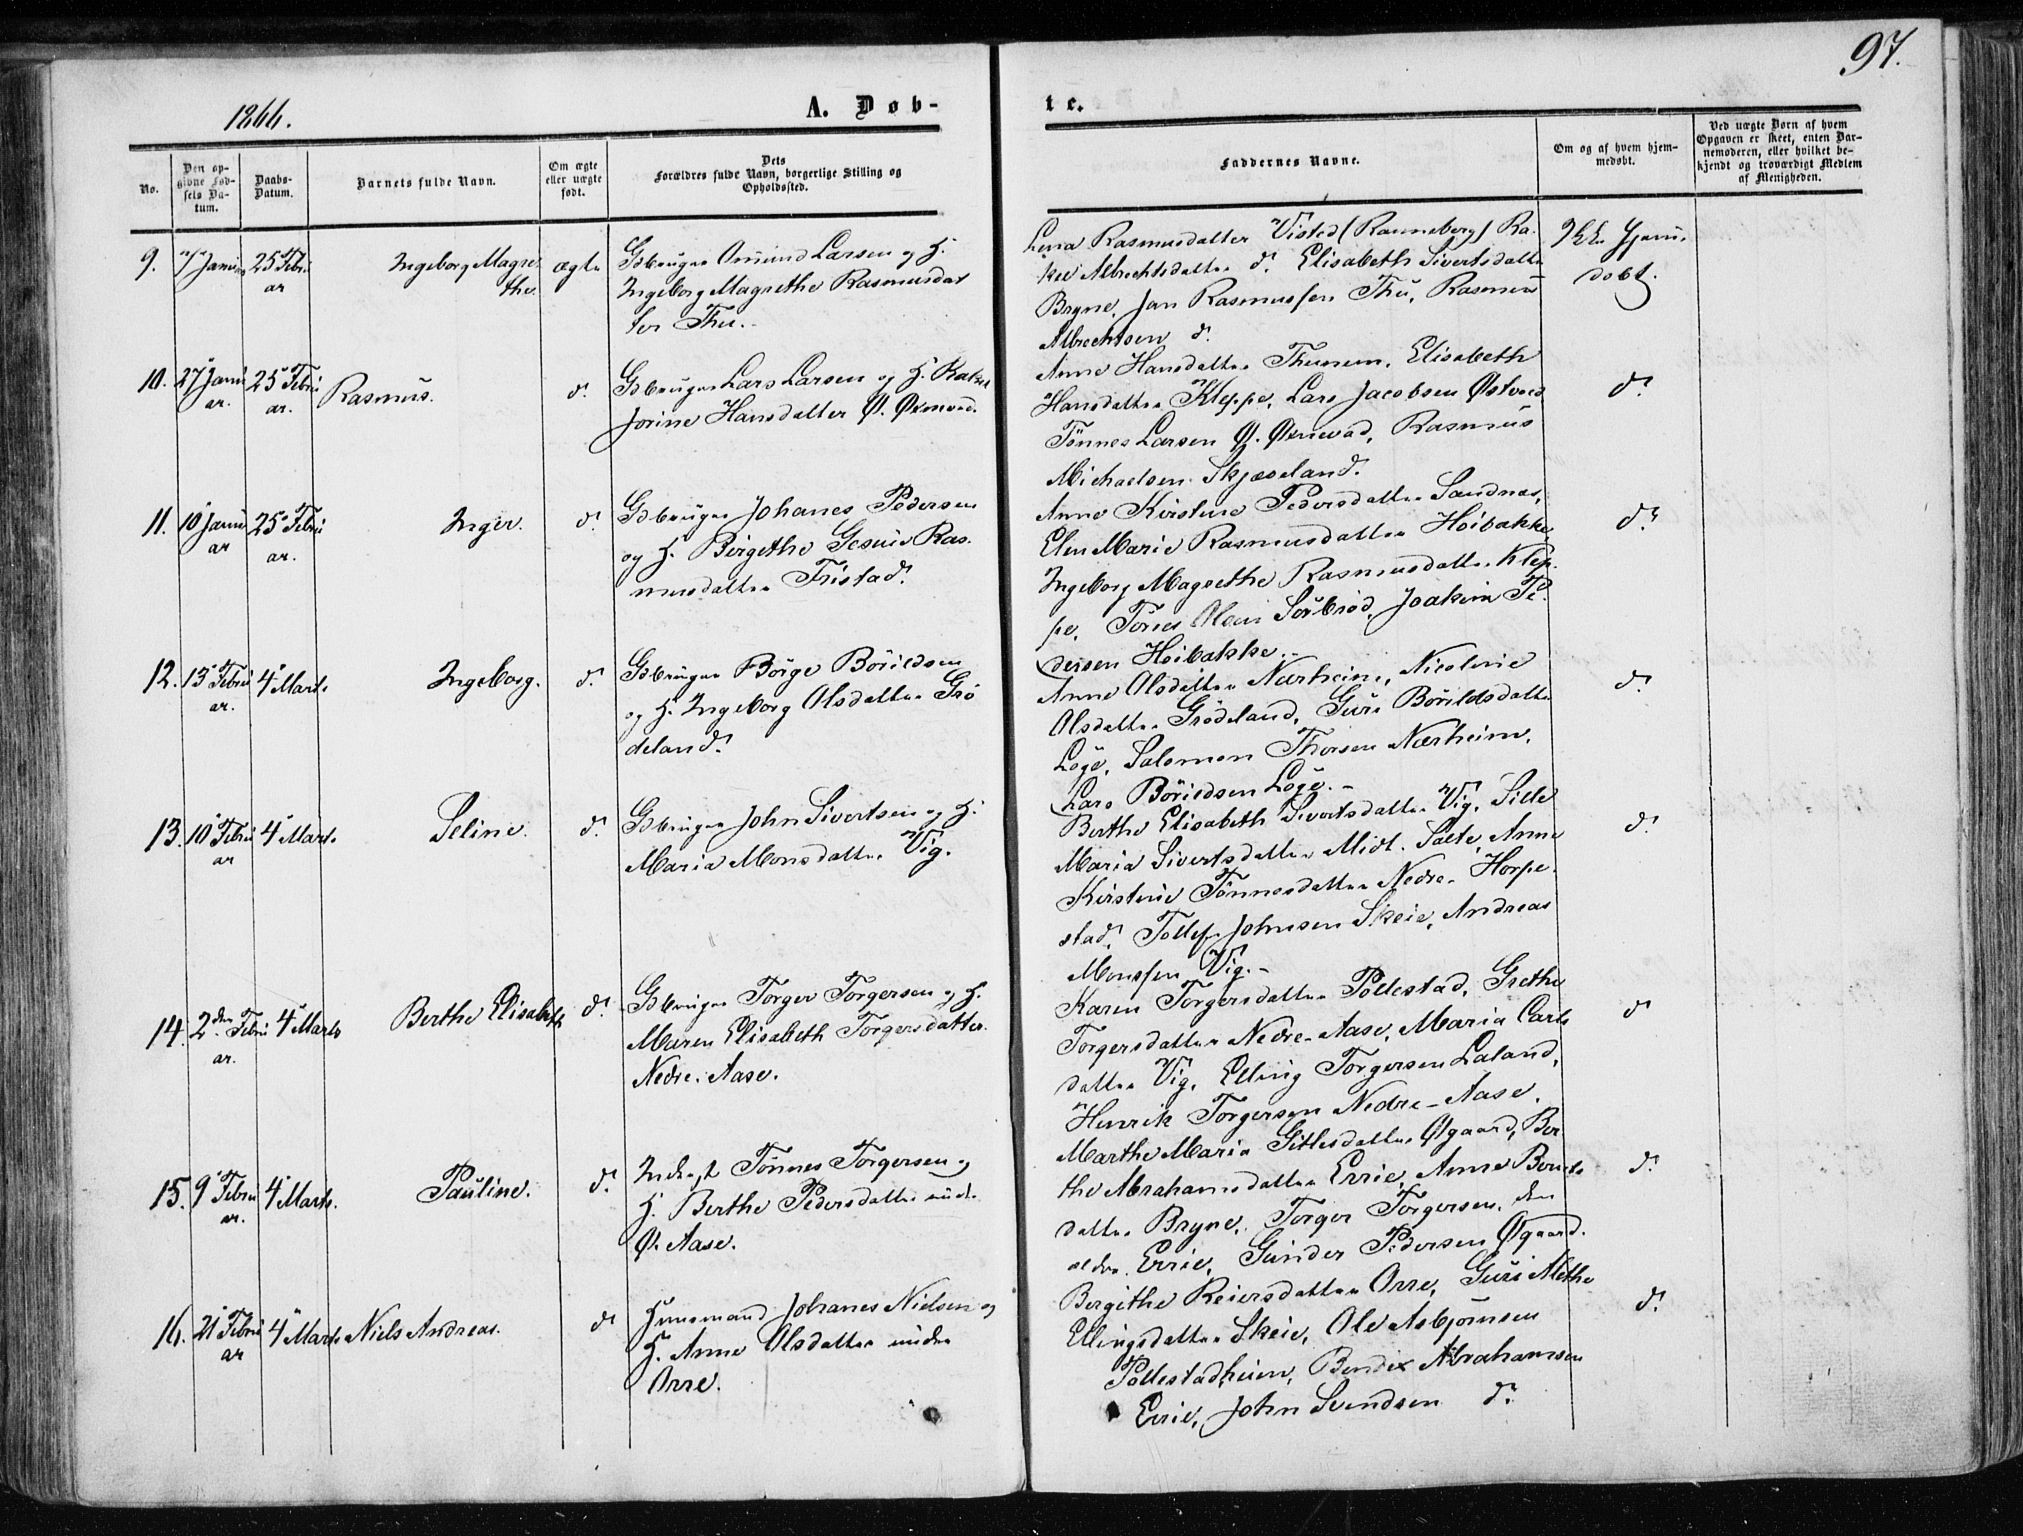 97.
1866.
A. Døb-
te.
No.
Den op-
givne Fød-
sels Da-
tum.
Daabs-
Datum.
Barnets fulde Navn.
Om ægte
eller uægte
født.
Dets
Forældres fulde Navn, borgerlige Stilling og
Opholdssted.
Faddernes Navne.
Om og af hvem hjem-
medøbt.
Ved uægte Børn af hvem
Opgaven er skeet, enten Bar-
nemoderen, eller hvilket be-
kjendt og troværdigt Medlem
af Menigheden.
9.
25 Febru
ar
Ingeborg Magre
the.
ægte
Gbruger Omund Larsen og H.
Ingeborg Magrethe Rasmusdat
ter Thu.
Lena Rasmusdatter Visted (Ranneberg) Ra-
kel Albrechtsdatter d. Elisabeth Sivertsdatter
Bryne, Jan Rasmussen Thu, Rasmus
Albrechtsen d.
Ikke Hjem-
døbt.
10.
27 Janu
ar.
25 Febru
ar.
Rasmus.
d.
Gbruger Lars Larsen og H. Rakel
Jorine Hansdatter Ø. Øxnevad.
Anne Hansdatter Thunem, Elisabeth
Hansdatter Kleppe, Lars Jacobsen Østvad
Tønnes Larsen Ø. Øxnevad, Rasmus
Michaelsen Skjæveland.
d.
11.
10 Janu
ar
25 Febru
ar.
Inger.
d.
Gbruger Johanes Pedersen
og H. Birgethe Gesine Ras-
musdatter Fristad.
Anne Kirstine Pedersdatter Sandnæs,
Elen Marie Rasmusdatter Høibakke
Ingeborg Magrethe Rasmusdatter Klep-
pe, Tønes Sørbrød, Joakim Pe-
dersen Høibakke.
d.
12.
13 Febru
ar.
4 Marts
Ingeborg.
d.
Gbruger Børge Børildsen
og H. Ingeborg Olsdatter Grø
deland.
Anne Olsdatter Nærheim, Nicoline
Olsdatter Grødeland, Guri Børildsdatter
Løge, Salomon Thorsen Nærheim,
Lars Børildsen Løge.
d.
13.
10 Febru
ar
4 Marts
Seline.
d.
Gbruger John Sivertsen og H.
Maria Monsdatter Vig.
Berthe Elisabeth Sivertsdatter Vig, Sille
Maria Sivertsdatter Midt-Salte, Anne
Kirstine Tønnesdatter Nedre-Horpe-
stad, Tollef Johnsen Skeie, Andreas
Monssen Vig.
d.
14.
2den Febru
ar.
4 Marts
Berthe Elisabeth
d.
Gbruger Torger Torgersen og H.
Maren Elisabeth Torgersdatter
Nedre-Aase.
Karen Torgersdatter Pollestad, Grethe
Torgersdatter Nedre-Aase, Maria Carls
datter Vig, Elling Torgersen Laland,
Henrik Torgersen Nedre-Aase.
d
15.
9 Febru
ar.
4 Marts.
Pauline.
d.
Inderst Tønnes Torgersen og
H. Berthe Pedersdatter under
Ø. Aase.
Marthe Maria Gitlesdatter Øgaard, Ber
the Abrahamsdatter Errie, Anne Bernts
datter Bryne, Torger Torgersen den
ældre Errie, Gunder Pedersen Øgaard.
d.
16.
21 Febru
ar
4 Marts
Niels Andreas.
d
Huusmand Johanes Nielsen og
H. Anne Olsdatter under
Orre.
Bergithe Reiersdatter Orre, Guri Alethe
Ellingsdatter Skeie, Ole Asbjørnsen
Pollestadheien, Bendix Abrahamsen
Errie, John Svendsen d.
d.